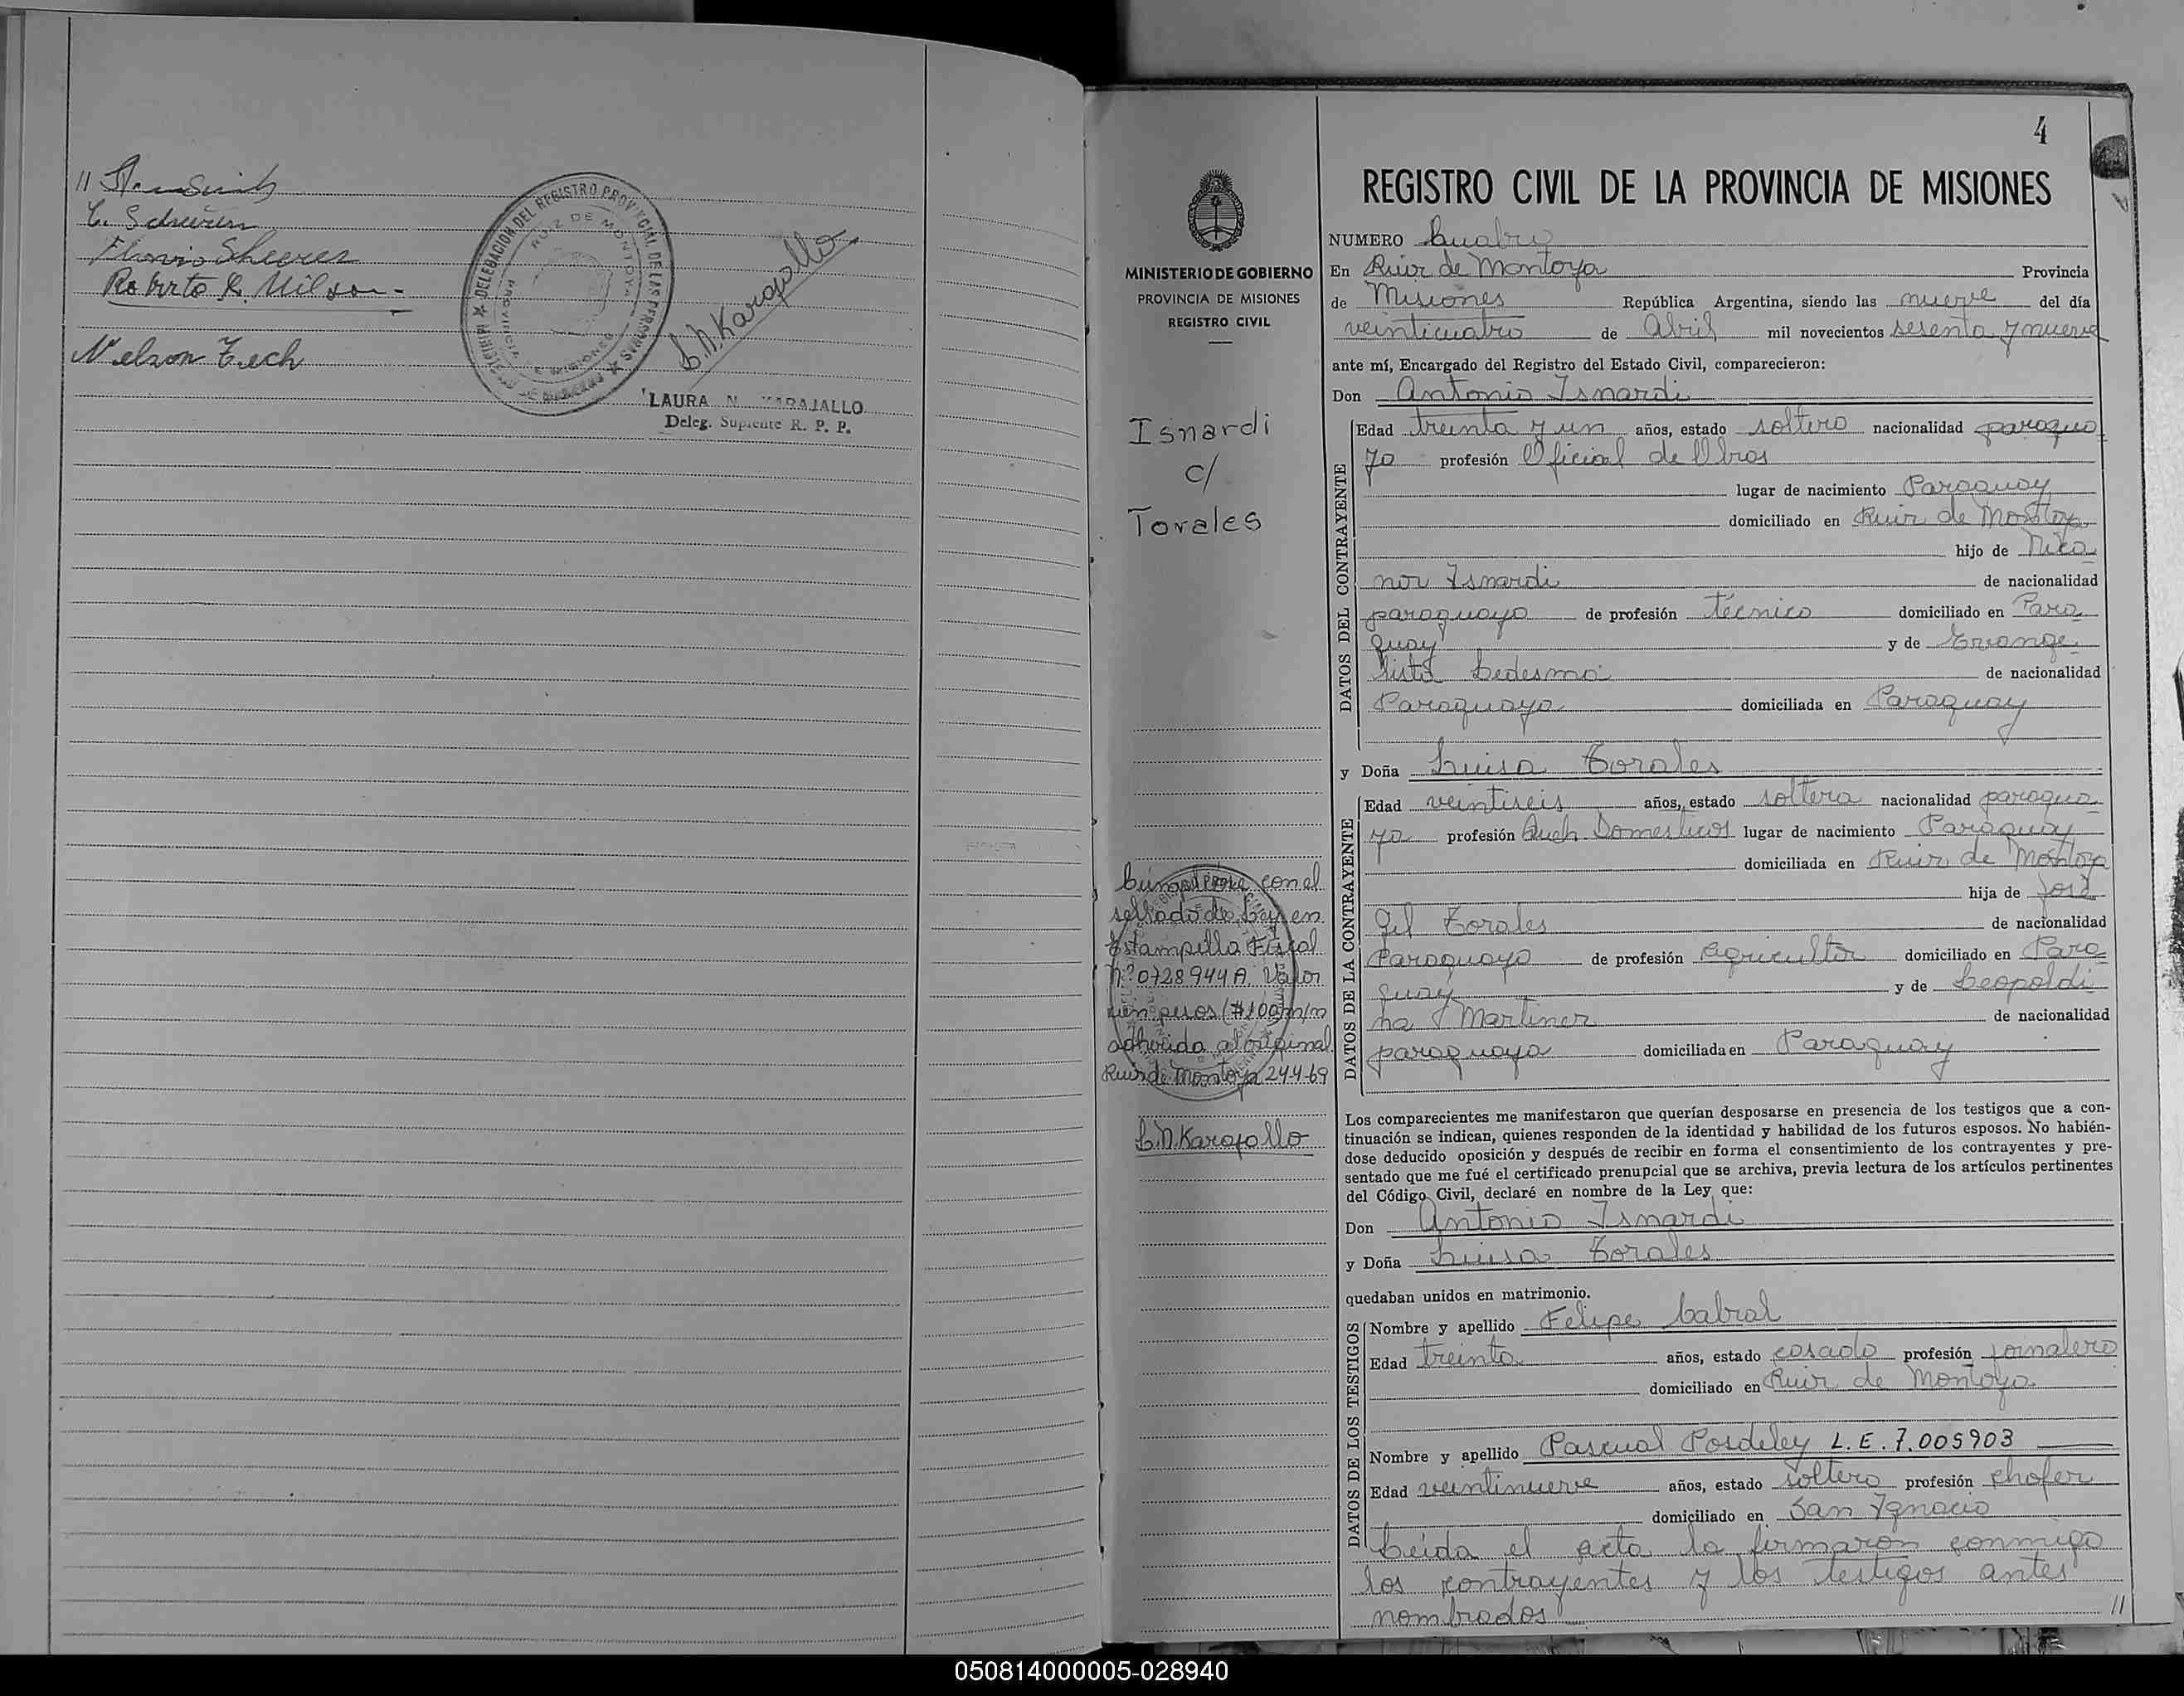 //
C. Schwim
Flavio Sheerer
Roberto R. Nilson
Nelson Tech
DELEGACION DEL REGISTRO PROVINCIAL DE LAS PERSONAS
RUIZ DE MONTOYA
L.N.Karajallo
LAURA N. KARAJALLO
Deleg. Suplente R. P. P.
MINISTERIO DE GOBIERNO
PROVINCIA DE MISIONES
REGISTRO CIVIL
Isnardi
c/
Torales
Cumplióse con el
sellado de Ley en
Estampilla Fiscal
Nº 0728944A. Valor
cien pesos ($100 m/n
adherida al original
Ruiz de Montoya 24-4-69
L.N.Karajallo
4
REGISTRO CIVIL DE LA PROVINCIA DE MISIONES
NUMERO Cuatro
En Ruiz de Montoya Provincia
de Misiones República Argentina, siendo las nueve del día
veinticuatro de Abril mil novecientos sesenta y nueve
ante mí, Encargado del Registro del Estado Civil, comparecieron:
Don Antonio Isnardi
DATOS DEL CONTRAYENTE
Edad treinta y un años, estado soltero nacionalidad paragua
yo profesión Oficial de Obras
lugar de nacimiento Paraguay
domiciliado en Ruiz de Montoya
hijo de Nica
nor Isnardi de nacionalidad
paraguayo de profesión técnico domiciliado en Para
guay y de Evange
lista Ledesma de nacionalidad
Paraguaya domiciliada en Paraguay
y Doña Luisa Torales
DATOS DE LA CONTRAYENTE
Edad veintiseis años, estado soltera nacionalidad paragua
ya profesión Queh. Domesticos lugar de nacimiento Paraguay
domiciliada en Ruiz de Montoya
hija de José
Gil Torales de nacionalidad
Paraguayo de profesión agricultor domiciliado en Para
guay y de Leopoldi
na Martinez de nacionalidad
paraguaya domiciliada en Paraguay
Los comparecientes me manifestaron que querían desposarse en presencia de los testigos que a con-
tinuación se indican, quienes responden de la identidad y habilidad de los futuros esposos. No habién-
dose deducido oposición y después de recibir en forma el consentimiento de los contrayentes y pre-
sentado que me fué el certificado prenupcial que se archiva, previa lectura de los artículos pertinentes
del Código Civil, declaré en nombre de la Ley que:
Don Antonio Isnardi
y Doña Luisa Torales
quedaban unidos en matrimonio.
DATOS DE LOS TESTIGOS
Nombre y apellido Felipe Cabral
Edad treinta años, estado casado profesión jornalero
domiciliado en Ruiz de Montoya
Nombre y apellido Pascual Posdeley L.E. 7.005903
Edad veintinueve años, estado soltero profesión chofer
domiciliado en San Ignacio
Leida el acta la firmaron conmigo
los contrayentes y los testigos antes
nombrados //
050814000005-028940